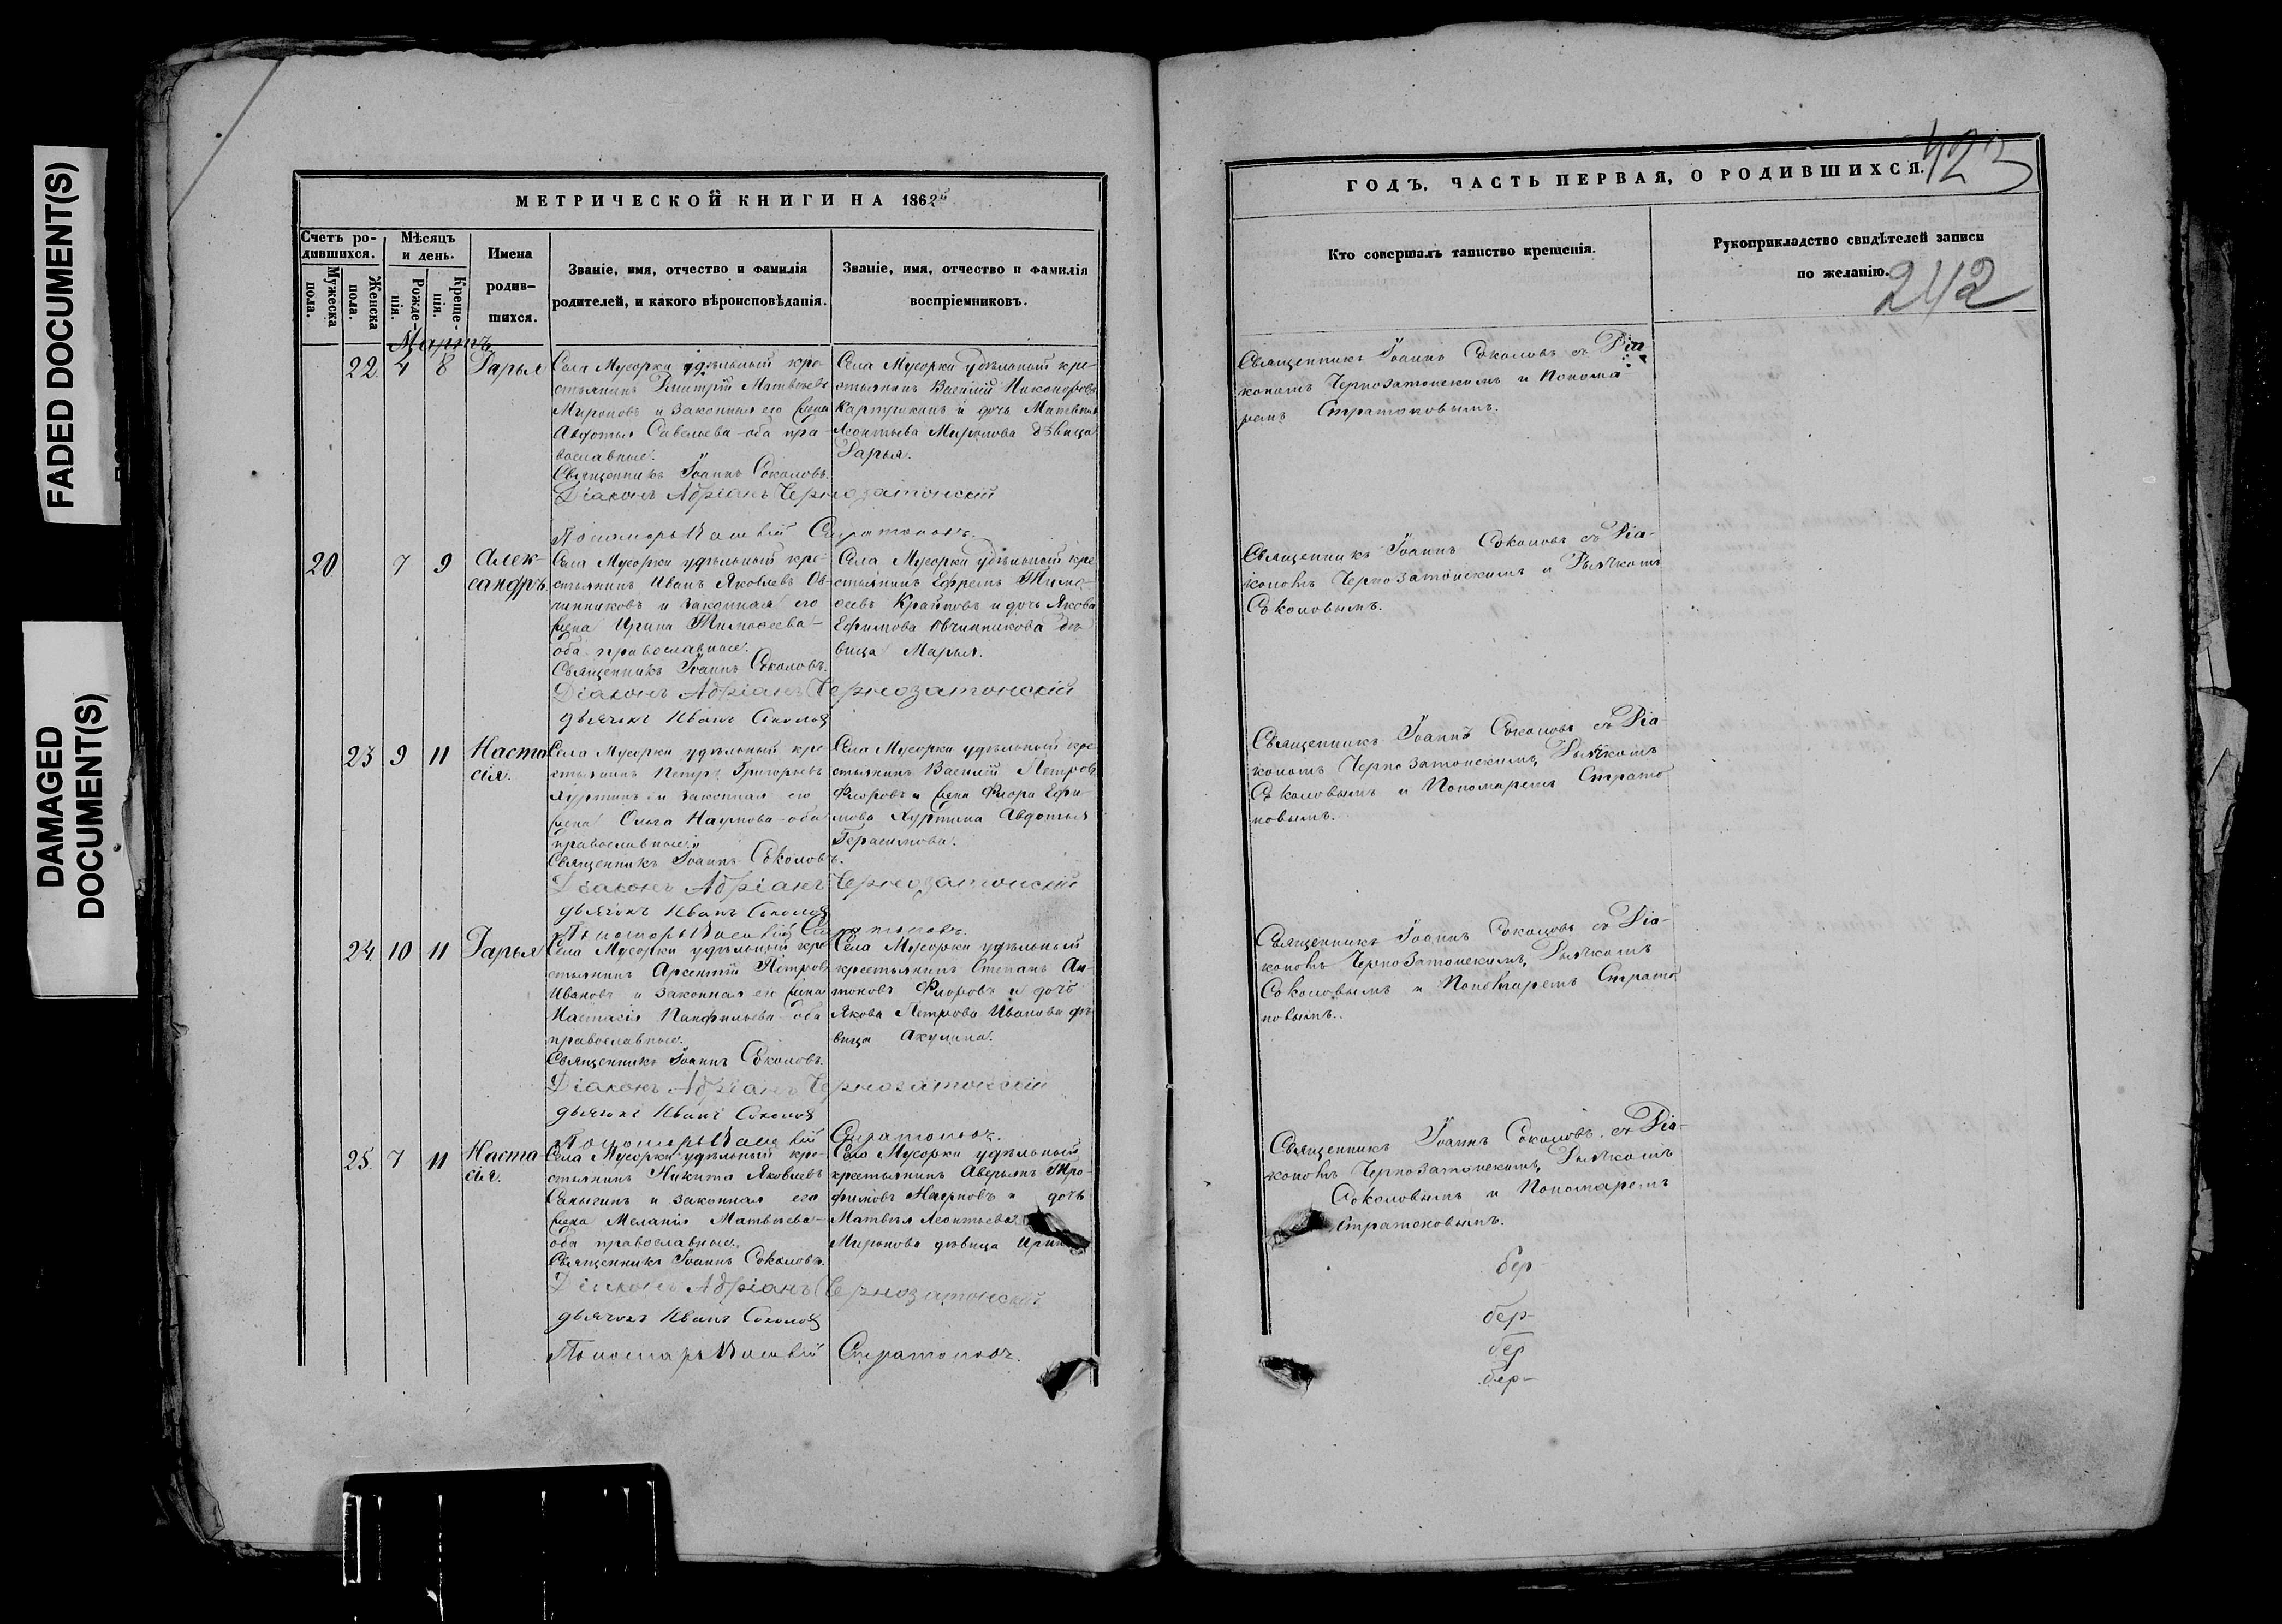 FADED DOCUMENT(S)
DAMAGED
DOCUMENT(S)
МЕТРИЧЕСКОЙ КНИГИ НА 1862й
Счетъ ро-
дившихся.
Мужеска
пола.
Женска
пола.
Мѣсяцъ
и день.
Рожде-
нія.
Креще-
нія.
Имена
родив-
шихся.
Званіе, имя, отчество и фамилія
родителей, и какого вѣроисповѣданія.
Званіе, имя, отчество и фамилія
воспріемниковъ.
Мартъ
22. 4 8 Дарья
Села Мусорки удѣльный кре-
стьянинъ Дмитрій Матвѣевъ
Мироновъ и законная его жена
Авдотья Савельева оба пра-
вославные.
Священникъ Іоаннъ Соколовъ.
Діаконъ Адріанъ Чернозатонскій
Пономарь Стратоновъ.
Села Мусорки удѣльный кре-
стьянинъ Василій Никоноровъ
Картушкинъ и дочь Матвѣя
Леонтьева Миронова дѣвица
Дарья.
20 7 9 Алек-
сандръ
Села Мусорки удѣльный кре-
стьянинъ Иванъ Яковлевъ Ов-
чинниковъ и законная его
жена Ирина Тимоѳеева-
оба православные.
Священникъ Іоаннъ Соколовъ.
Діаконъ Адріанъ Чернозатонскій
дьячокъ Иванъ Соколов
Села Мусорки удѣльный кре-
стьянинъ Ефремъ Тимо-
ѳеевъ Крайновъ и дочь Якова
Ефимова Овчинникова дѣ-
вица Марья.
23 9 11 Наста
сія.
Села Мусорки удѣльный кре-
стьянинъ Петръ Григорьевъ
и законная его
жена Ольга Наумова оба
православные.
Священникъ Іоаннъ Соколовъ.
Діаконъ Адріанъ Чернозатонскій
дьячокъ Иванъ Соколов
Пономарь Стратоновъ.
Села Мусорки удѣльный кре-
стьянинъ Василій Петровъ
Флоровъ и жена Флора Ефи-
мова Авдотья
Герасимова.
24. 10 11 Дарья
Села Мусорки удѣльный кре-
стьянинъ Арсентій Петровъ
Ивановъ и законная его жена
Настасія Панфильева оба
православные.
Священникъ Іоаннъ Соколовъ.
Діаконъ Адріанъ Чернозатонскій
дьячокъ Иванъ Соколов
Пономарь Стратоновъ.
Села Мусорки удѣльный
крестьянинъ Степанъ Ан-
тоновъ Флоровъ и дочь
Якова Петрова Иванова дѣ-
вица Акулина.
25. 7 11 Наста
сія.
Села Мусорки удѣльный кре-
стьянинъ Никита Яковлевъ
и законная его
жена Меланія Матвѣева-
оба православные.
Священникъ Іоаннъ Соколовъ.
Діаконъ Адріанъ Чернозатонскій
дьячокъ Иванъ Соколов
Пономарь Стратоновъ.
Села Мусорки удѣльный
крестьянинъ Аверьянъ Тро-
фимовъ Наумовъ и дочь
Матвѣя Леонтьева
Миронова дѣвица
423
ГОДЪ, ЧАСТЬ ПЕРВАЯ, О РОДИВШИХСЯ.
Кто совершалъ таинство крещенія.
Рукоприкладство свидѣтелей записи
по желанію.
242
Священникъ Іоаннъ Соколовъ съ Діа
кономъ Чернозатонскимъ и Понома
ремъ Стратоновымъ.
Священникъ Іоаннъ Соколовъ съ Діа-
кономъ Чернозатонскимъ и Дьячкомъ
Соколовымъ.
Священникъ Іоаннъ Соколовъ съ Діа
кономъ Чернозатонскимъ, Дьячкомъ
Соколовымъ и Пономаремъ Страто
новымъ.
Священникъ Іоаннъ Соколовъ съ Діа-
кономъ Чернозатонскимъ, Дьячкомъ
Соколовымъ и Пономаремъ Страто
новымъ.
Священникъ Іоаннъ Соколовъ съ Діа-
кономъ Чернозатонскимъ, Дьячкомъ
Соколовымъ и Пономаремъ
Стратоновымъ.
бер-
бер-
бер
бер-